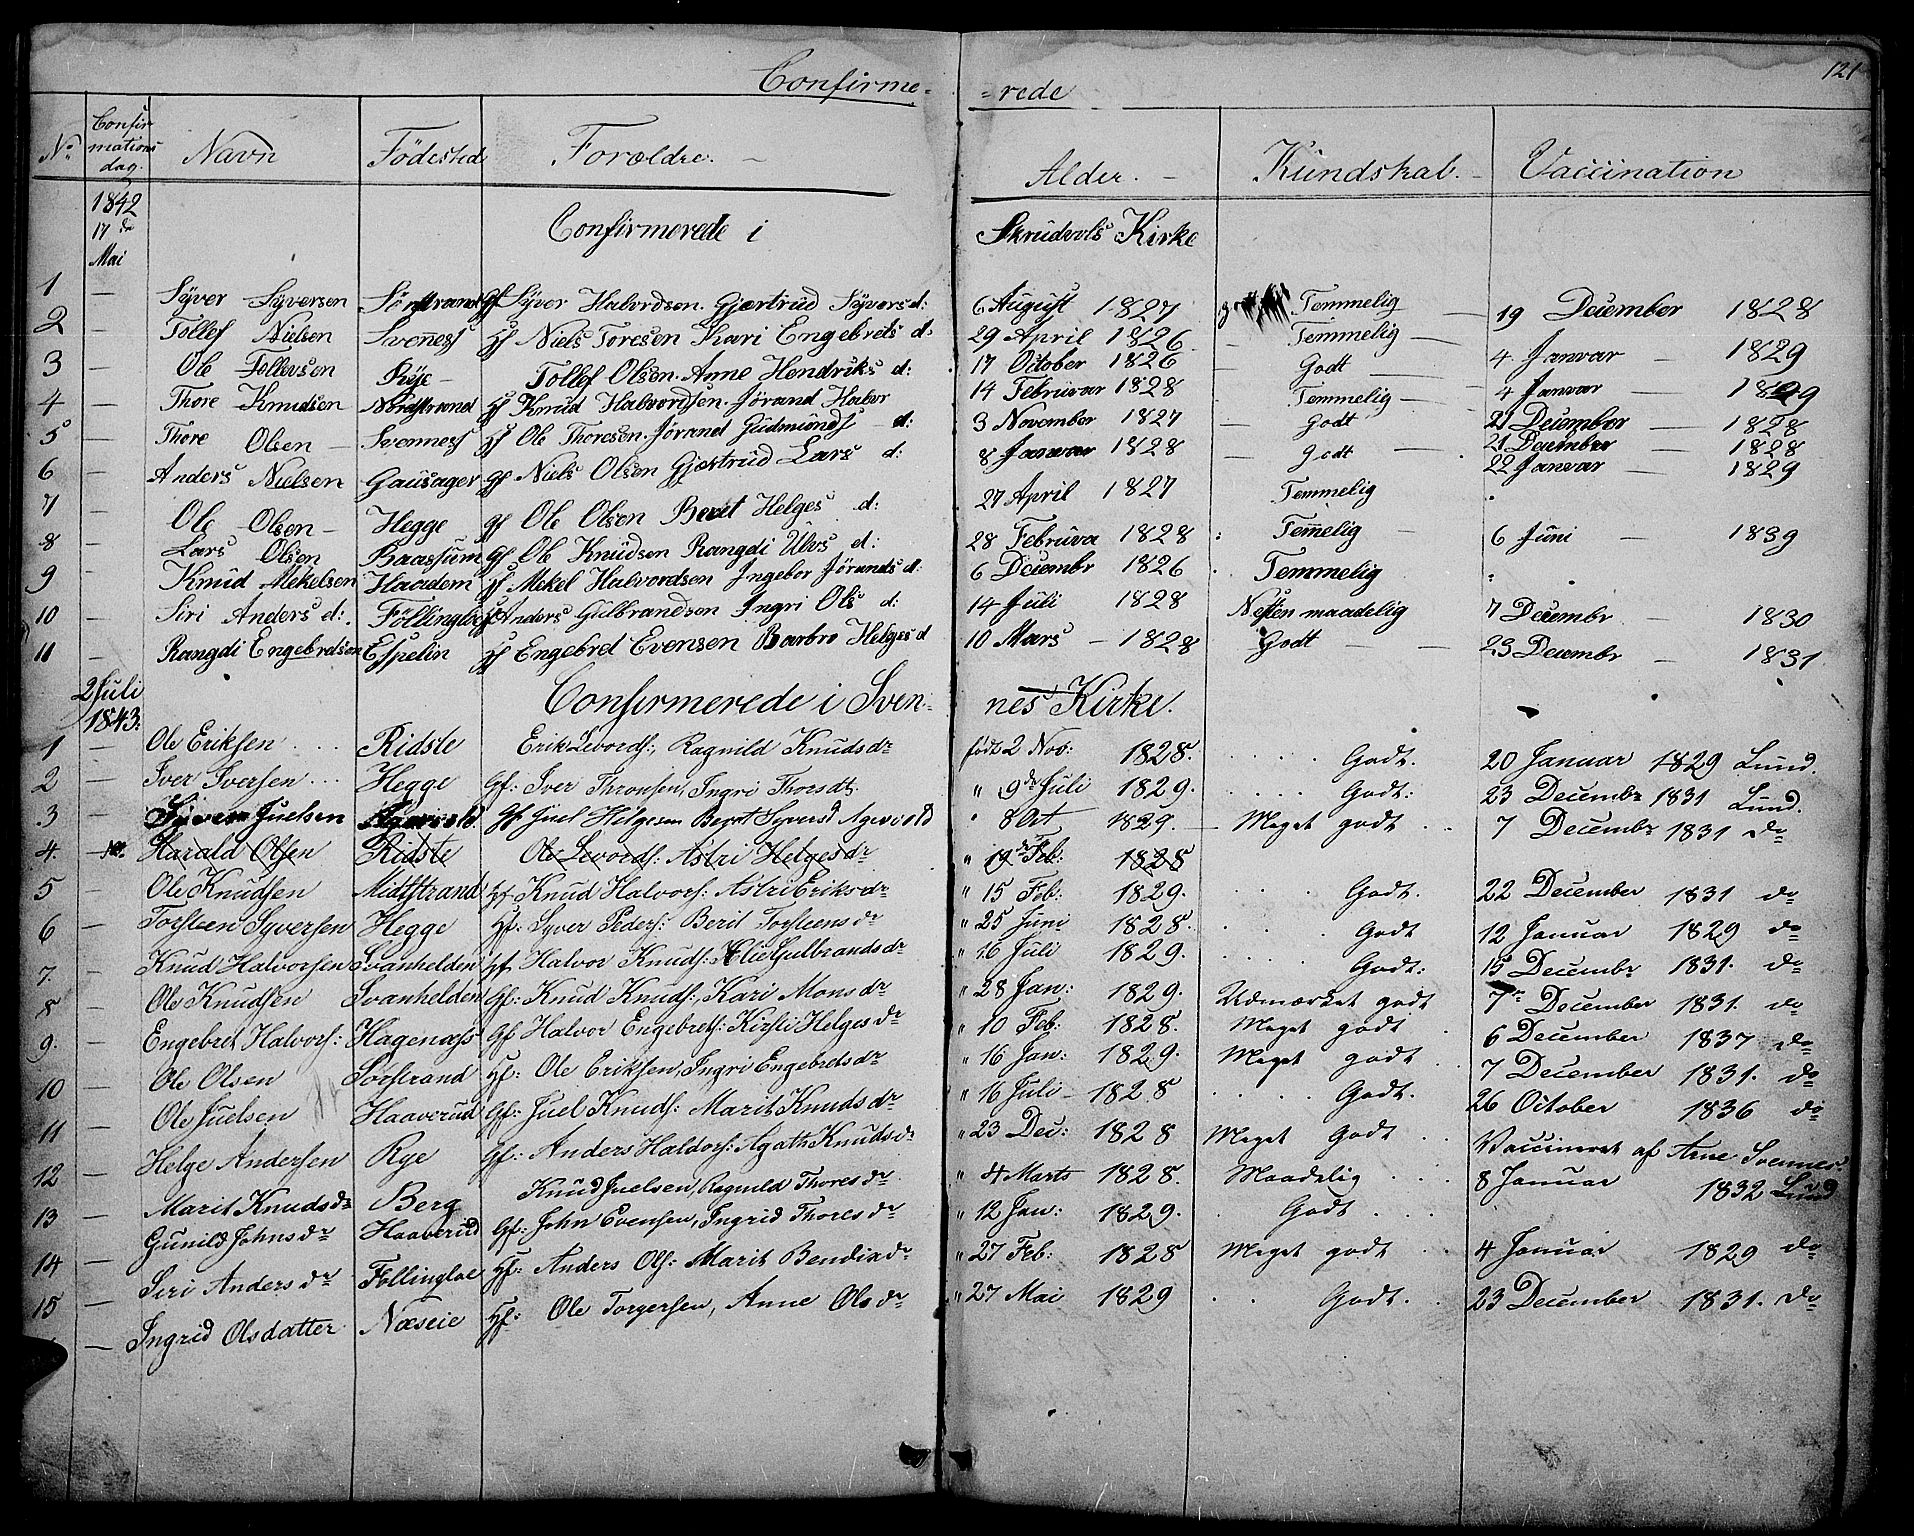 121
Confirme- -rede
No. Confirmations dag. Navn Födested Forældre. Alder. Kundskab. Vaccination
1842 17de Mai Confirmerede i Skrudvols Kirke
1 — Syver Syversen Sörstrand gf Syver Halvordsen. Gjertrud Syvers d: 6 August 1827 Temmelig — 19 December 1828
2 — Tollef Nielsen Svennes hf Niels Toresen Kari Engebrets d: 29 April 1826 — Temmelig — 4 Janvar — 1829
3 — Ole Tollevsen Rye — Tollef Olsen. Anne Hendriks d: 17 October 1826 — Godt — 4 Janvar — 1829
4 — Thore Knudsen Nordstrand hf Knud Halvordsen. Jörand Halvor 14 Februvar 1828 — Temmelig — 21 December — 1828
5 — Thore Olsen — Svennes hf Ole Thoresen. Jörand Gudmunds d: 3 November 1827 — Godt 21 December — 1828
6 — Anders Nielsen Gausager gf Niels Olsen Gjertrud Lars d: 8 Janvar 1828 — Godt — 22 Janvar — 1829
7 — Ole Olsen — Hegge gf Ole Olsen Beret Helges d: 27 April 1827 Temmelig "
8 — Lars Olsen Baassum gf Ole Knudsen Rangdi Ulvs d: 28 Februva 1828 : Temmelig — 6 Juni — 1839
9 — Knud Mekelsen Haadem hf Mekel Halvordsen Ingebor Jörands d: 6 Decembr 1826 . Temmelig "
10 — Siri Anders d: Föllingloe hf Anders Gulbrandsen Ingri Ols d: 14 Juli 1828 Nesten maadelig 7 Decembr — 1830
11 — Rangdi Engebredsen Espelin hf Engebret Evensen Barbro Helges d 10 Mars — 1828 Godt — — 23 Decembr — 1831
2 Juli 1843. Confirmerede i Sven- nes Kirke.
1 — Ole Eriksen . . . . Ridste Erik Levords:, Ragnild Knudsdr født 2 Nov: 1828. . . . . Godt. 20 Januar 1829 Lund.
2 — Iver Iversen . . . Hegge Gf: Iver Thronsen, Ingri Thoresdt. " 9de Juli 1829. . . . . Godt: 23 Decembr 1831 Lund.
3 — Syver Juelsen Agervold Gf Juel Helgesen Berit Syversd Agervold " 8 Oct 1829. — Meget godt . . 7 Decembr 1831 do
4. — Harald Olsen Ridste Ole Levords: Astri Helgesdr " 19de Feb: 1828
5 — Ole Knudsen Midtstrand hf Knud Halvors: Astri Eriksdr " 15 Feb: 1829. . . . Godt. 22 December 1831 do
6 — Torsteen Syversen Hegge Hf: Syver Peders: Berit Torsteensdr " 25 Juni 1828. . . . Godt 12 Januar 1829 do
7. — Knud Halvorsen Svanhelden hf Halvor Knuds: Gulbrandsdr " 16 Juli 1829. . . . . Godt: 15 Decembr 1831. do
8 — Ole Knudsen Svanhelden Gf: Knud Knuds:, Kari Monsdr " 28 Jan: 1829. Udmærket godt 7de December 1831. do
9. — Engebret Halvors: Hagenæss Gf Halvor Engebrets: Kirsti Helgesdr " 10 Feb: 1828. Meget godt . 6 December 1837 do
10 — Ole Olsen Sørstrand Hf: Ole Eriksen, Ingri Engebretsdr " 16 Jan: 1829. Meget godt . 7 December 1831. do
11 — Ole Juelsen Haaverud Gf: Juel Knuds: Marit Knudsdr " 16 Juli — 1828 . . . . Godt. 26 October 1836 do
12 — Helge Andersen Rye Gf: Anders Haldors: Agath Knudsdr " 23 Dec: 1828 Meget Godt . . Vaccineret af Arne Svennes
13 — Marit Knudsdr Berg Knud Juelsen, Ragnild Thoresdr " 4 Marts 1828. Maadelig . . . 8 Januar 1832 Lund
14 — Gunild Johnsdr Haaverud Gf: John Evensen, Ingrid Thoresdr " 12 Jan: 1829. . Godt . . .
15 — Siri Andersdr Follingloe Hf: Anders Ols: Marit Bendixdr " 27 Feb: 1828 Meget godt . . 4 Januar 1829 do
— Ingrid Olsdatter Næseie Hf: Ole Torgersen, Anne Olsdr " 27 Mai 1829 . . Godt. . 23 December 1831. do